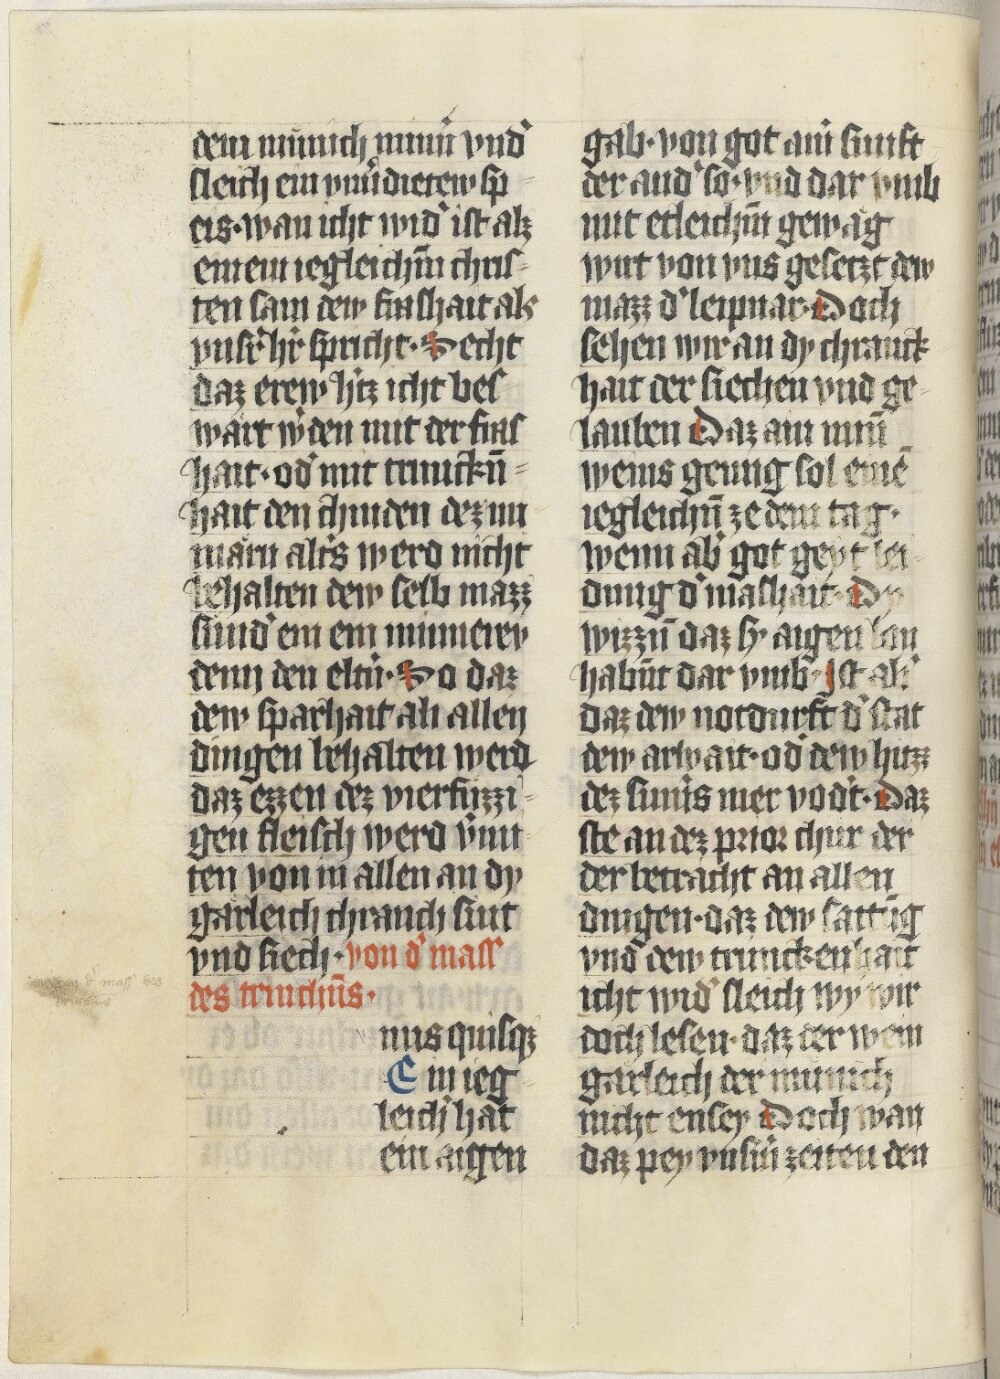 dem münich nimm̄ vnd᷑
sleich ein vnu᷑dietew sp
eis·wan icht wid᷑ ist alz
einem iegleichn̄ chris-
ten sam dew frashait als
vnser᷑ hr᷑ spricht·Secht
daz erew h᷑tz icht bes
wart w᷑den mit der fras
hait·od᷑ mit trunckn̄
hait den chinden dez nu
marn alt᷑s werd nicht
behalten dew selb mazz
sund᷑ ein ein minnerev
denn den elt᷑n·So daz
dew sparhait an allen
dingen behalten werd
daz ezzen dez vierfuzzi
gen fleisch werd v᷑mi
ten von in allen an dy
garleich chranch sint
vnd siech·von d᷑ mass
des trinchn̄s·
nus quisqz
Ein ieg
leich᷑ hat
ein aigen
gab·von got ain᷑ sunst
der and᷑ so·vnd dar vmb
mit etleichn̄ gewag
wirt von vns gesetzt dew
mazz d᷑ leipnar·Doch
sehen wir an dy chranck
hait der siechen vnd ge
lauben Daz ain min̄
weins genug sol einē
iegleichn̄ ze dem tag·
wenn ab᷑ got geyt lei
dung d᷑ mashait·Dy
wizzn̄ daz sy aigen lon
habn̄t dar vmb·Ist ab᷑
daz dew notdurft d᷑ stat
dew arwait·od᷑ dew hitzz
dez sum᷑s mer vod᷑t·Daz
ste an dez prior chur der
der betracht an allen
dingen·daz dew sattūg
vnd dew trunckenhait
icht wid᷑ sleich wy wir
doch lesen·daz der wein
garleich der münich
nicht ensey Doch wan
daz pey vnsn̄ zeiten den